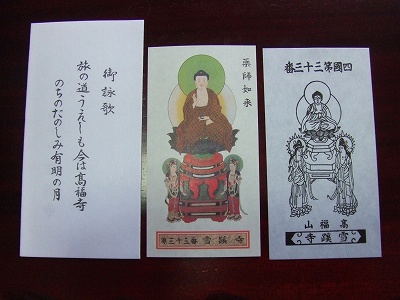 御詠歌
旅の道うえしも今は高福寺
のちのたのしみ有明の月
薬師如来
第三十三番 雪蹊寺
四國第三十三番
高福山
雪蹊寺